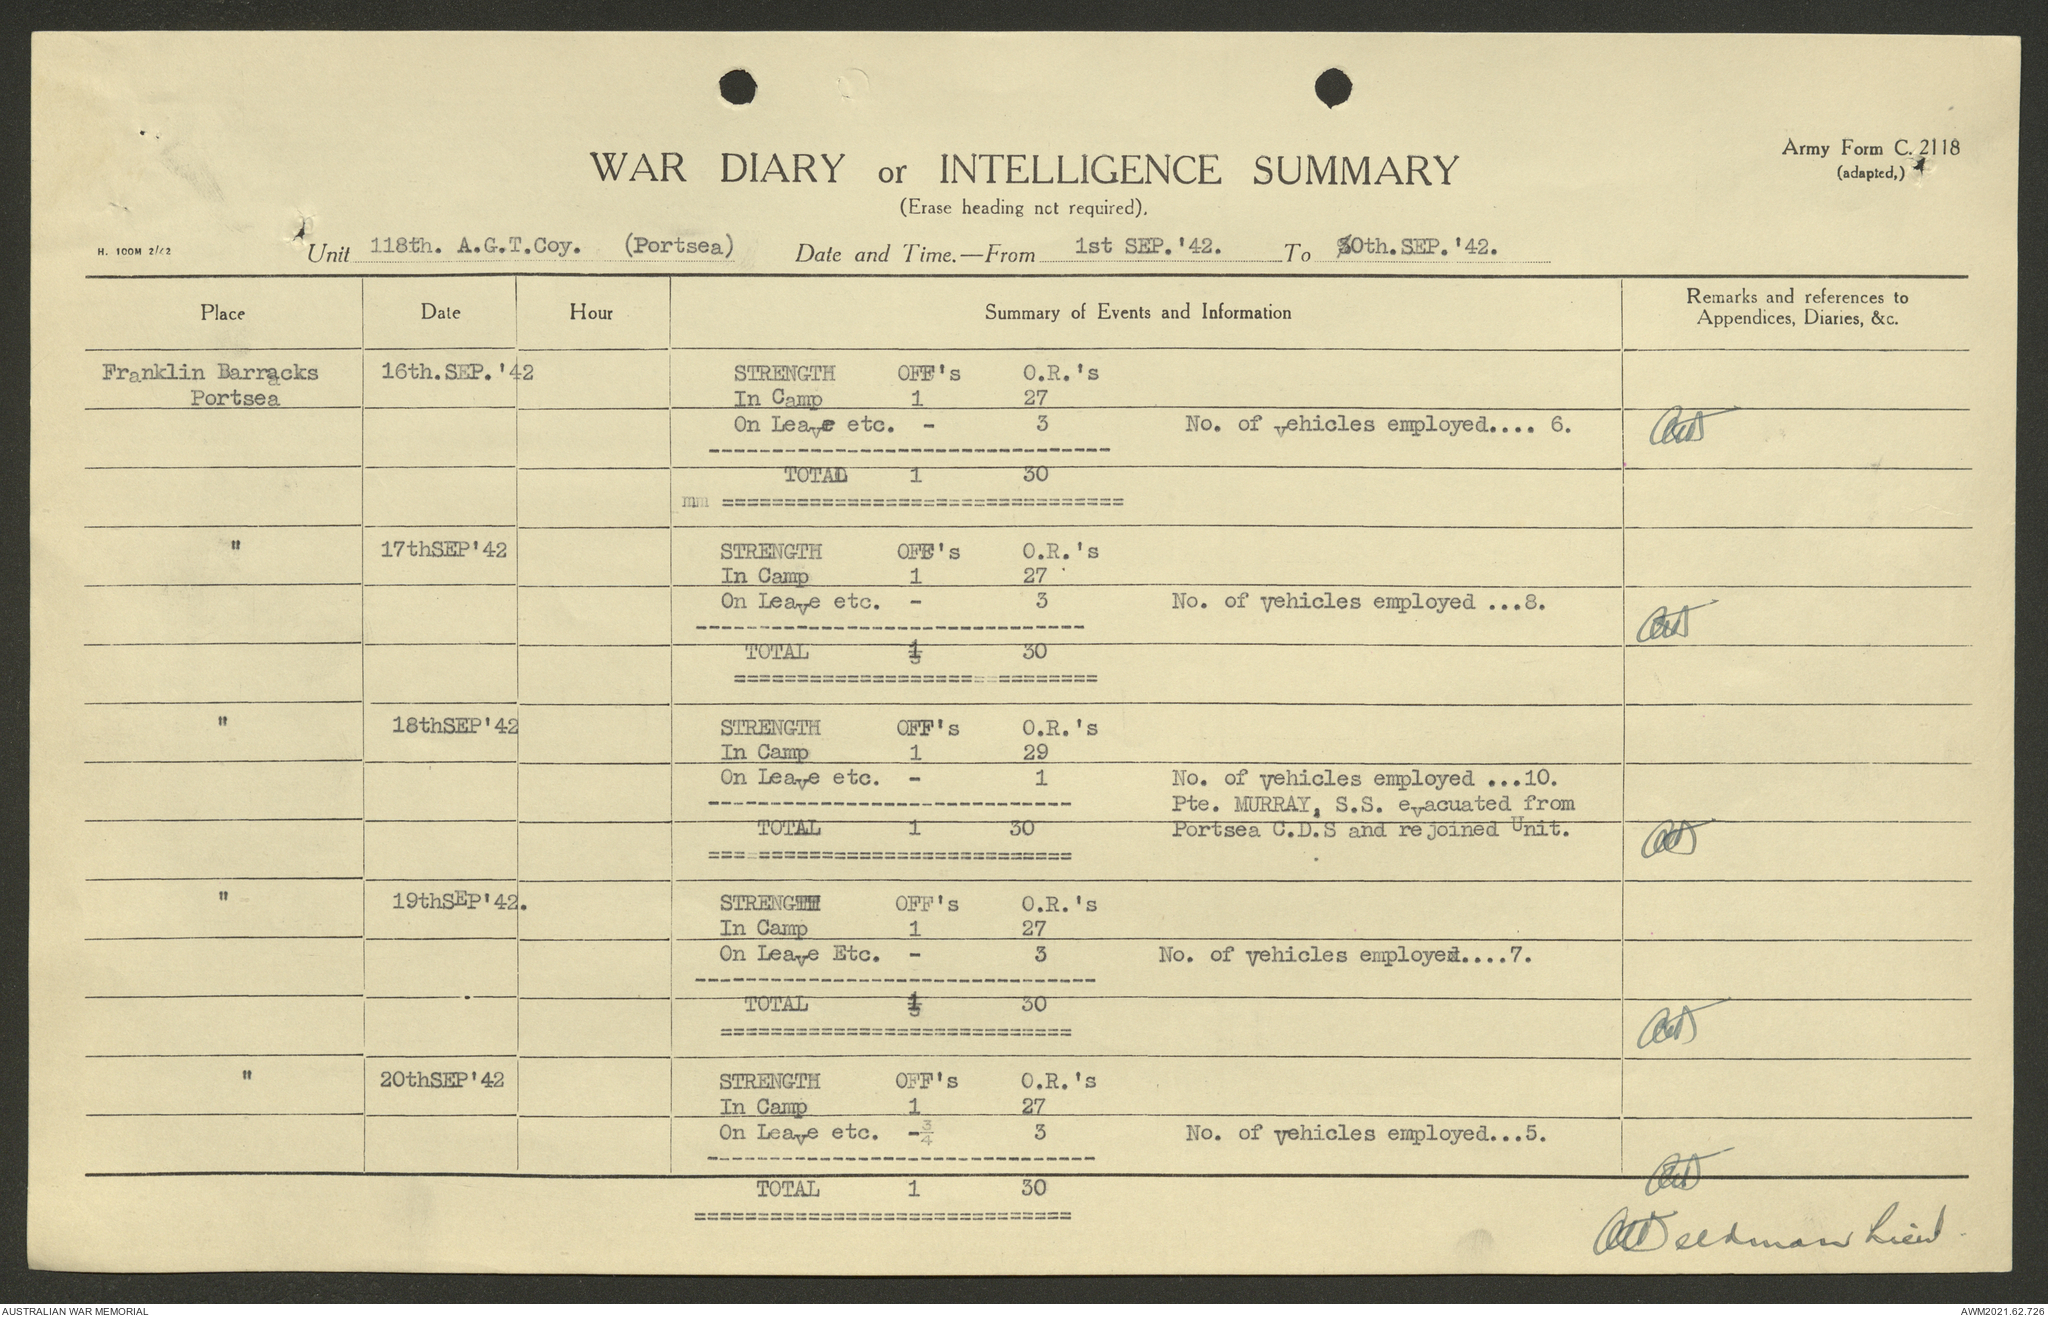 Army Form C. 2118
(adapted,)
WAR DIARY or INTELLIGENCE SUMMARY
(Erase heading not required).
H. 100M 2/42
Unit 118th. A.G.T.Coy. (Portsea) Date and Time.—From 1st SEP.'42. To 30th.SEP.'42.
Place Date Hour Summary of Events and Information Remarks and references to
Appendices, Diaries, &c.
Franklin Barracks 16th.SEP.'42 STRENGTH OFF's O.R.'s
Portsea In Camp 1 27
On Leave etc. - 3 No. of vehicles employed.... 6.
TOTAL 1 30
mm ================================
" 17thSEP'42 STRENGTH OFF's O.R.'s
In Camp 1 27
On Leave etc. - 3 No. of vehicles employed ...8.
-------------------------------
TOTAL 1 30
=============================
" 18thSEP'42 STRENGTH OFF's O.R.'s
In Camp 1 29
On Leave etc. - 1 No. of vehicles employed ...10.
----------------------------- Pte. MURRAY, S.S. evacuated from
TOTAL 1 30 Portsea C.D.S and rejoined Unit.
=============================
" 19thSEP'42. STRENGTH OFF's O.R.'s
In Camp 1 27
On Leave Etc. - 3 No. of vehicles employed....7.
--------------------------------
TOTAL 1 30
============================
" 20thSEP'42 STRENGTH OFF's O.R.'s
In Camp 1 27
On Leave etc. -¾ 3 No. of vehicles employed...5.
-------------------------------
TOTAL 1 30
==============================
Lieut
AUSTRALIAN WAR MEMORIAL AWM2021.62.726